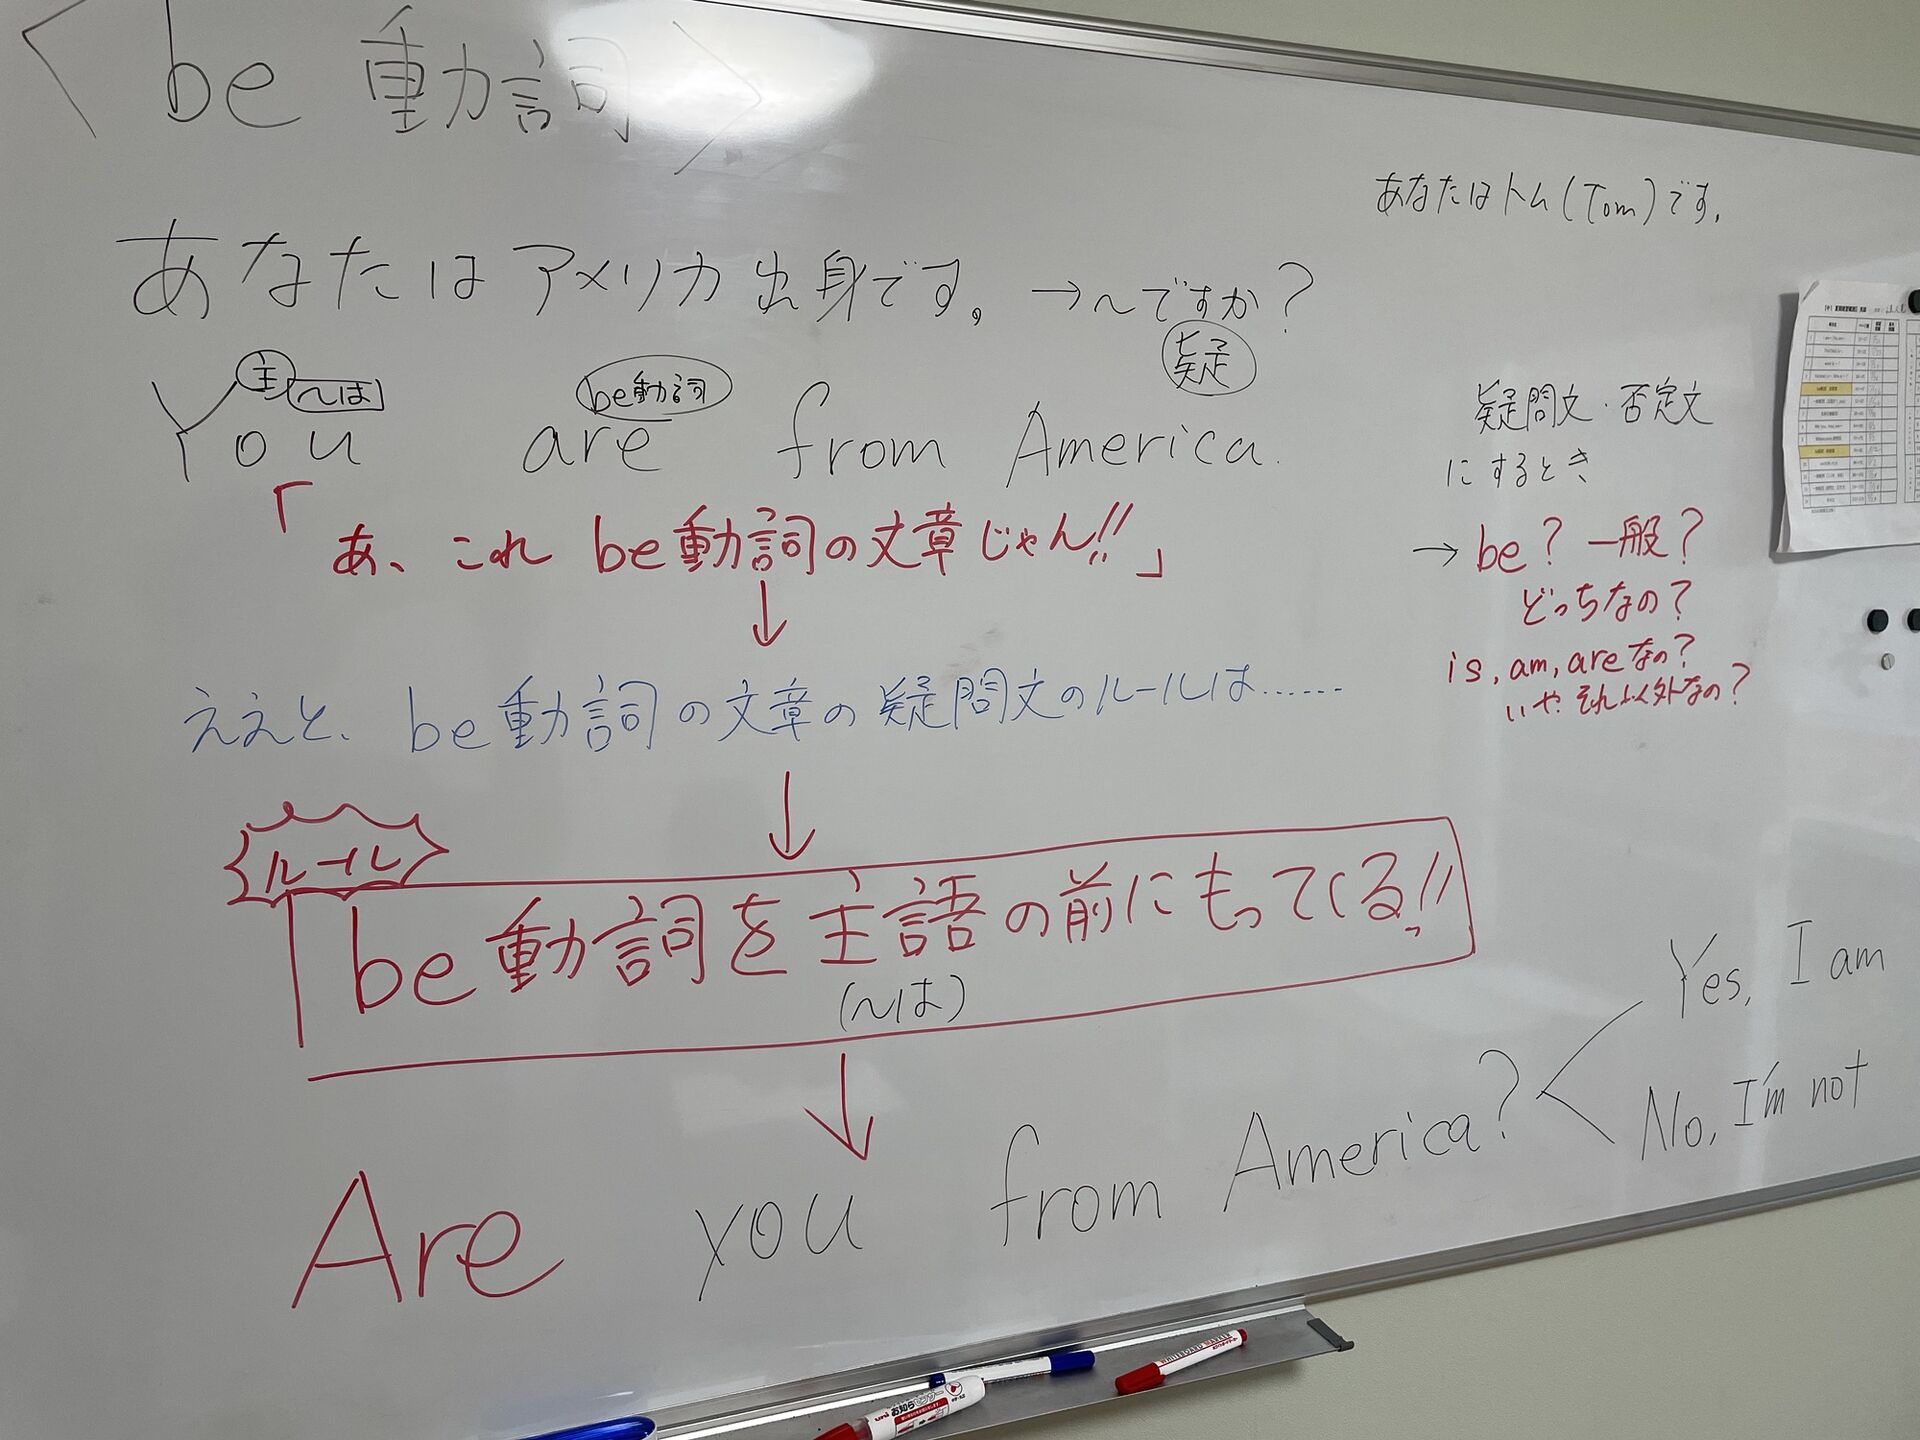 <be動詞>
あなたはトム(Tom)です。
あなたはアメリカ出身です。→〜ですか?
疑
主 〜は be動詞
You are from America.
「あ、これ be動詞の文章じゃん!!」
↓
ええと、be動詞の文章の疑問文のルールは……
↓
ルール
be動詞を主語の前にもってくる!!
(〜は)
↓
Are you from America?
Yes, I am
No, I'm not
疑問文・否定文
にするとき
→ be? 一般?
どっちなの?
is, am, areなの?
いや それ以外なの?
WHITEBOARD MARKER
uni お知らセンサー